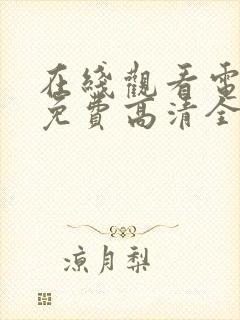 在綫觀看電
免費高清全
凉月梨